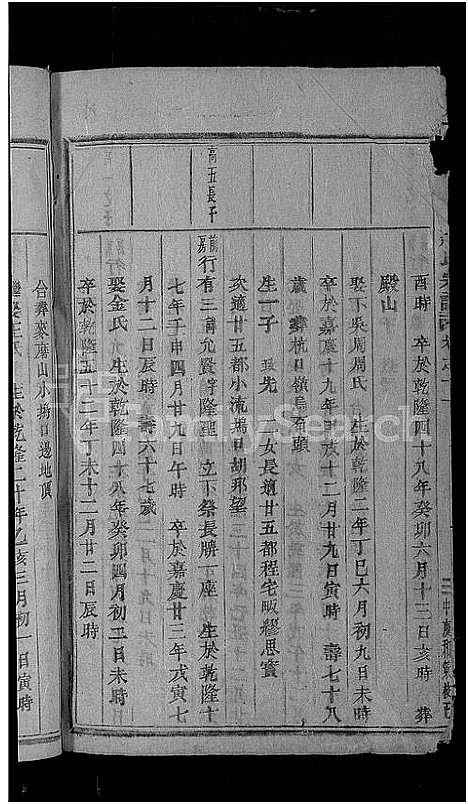 酉時 卒於乾隆四十八年癸卯六月十三日亥時 葬
殿山
娶下吳周周氏 生於乾隆二年丁巳六月初九日未時
卒於嘉慶十九年甲戌十二月廿九日寅時 壽七十八
歲 葬杭口領烏石頭
生一子 先 二女長適廿五都程宅畈繆思賓
次適廿五都小流塢口胡邦望
高五長子
行有三 諱允賢 字隆聖 立下祭長牌一座 生於乾隆十
七年壬申四月廿九日午時 卒於嘉慶廿三年戊寅七
月十二日辰時 壽六十七歲
娶金氏 生於乾隆四十八年癸卯四月初二日未時
卒於乾隆五十二年丁未十二月廿二日辰時
合葬來磨山小塢口邊地頂
繼娶王氏 生於乾隆二十年乙亥三月初一日寅時
FamilySearch